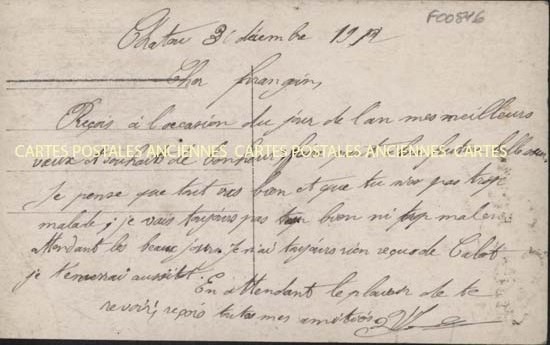 F00846
Chatou 31 décembre 19
Cher frangin,
Reçois à l'occasion du jour de l'an mes meilleurs
vœux et souhaits de bonheur
CARTES POSTALES ANCIENNES CARTES POSTALES ANCIENNES CARTES
Je pense que tout vas bien et que tu n'es pas trop
malade, je vais toujours pas trop bien ni trop mal en
Attendant les beaux jours. Je n'ai toujours rien reçu de
je t'enverrai aussitôt.
En attendant le plaisir de te
revoir, reçois toutes mes amitiés